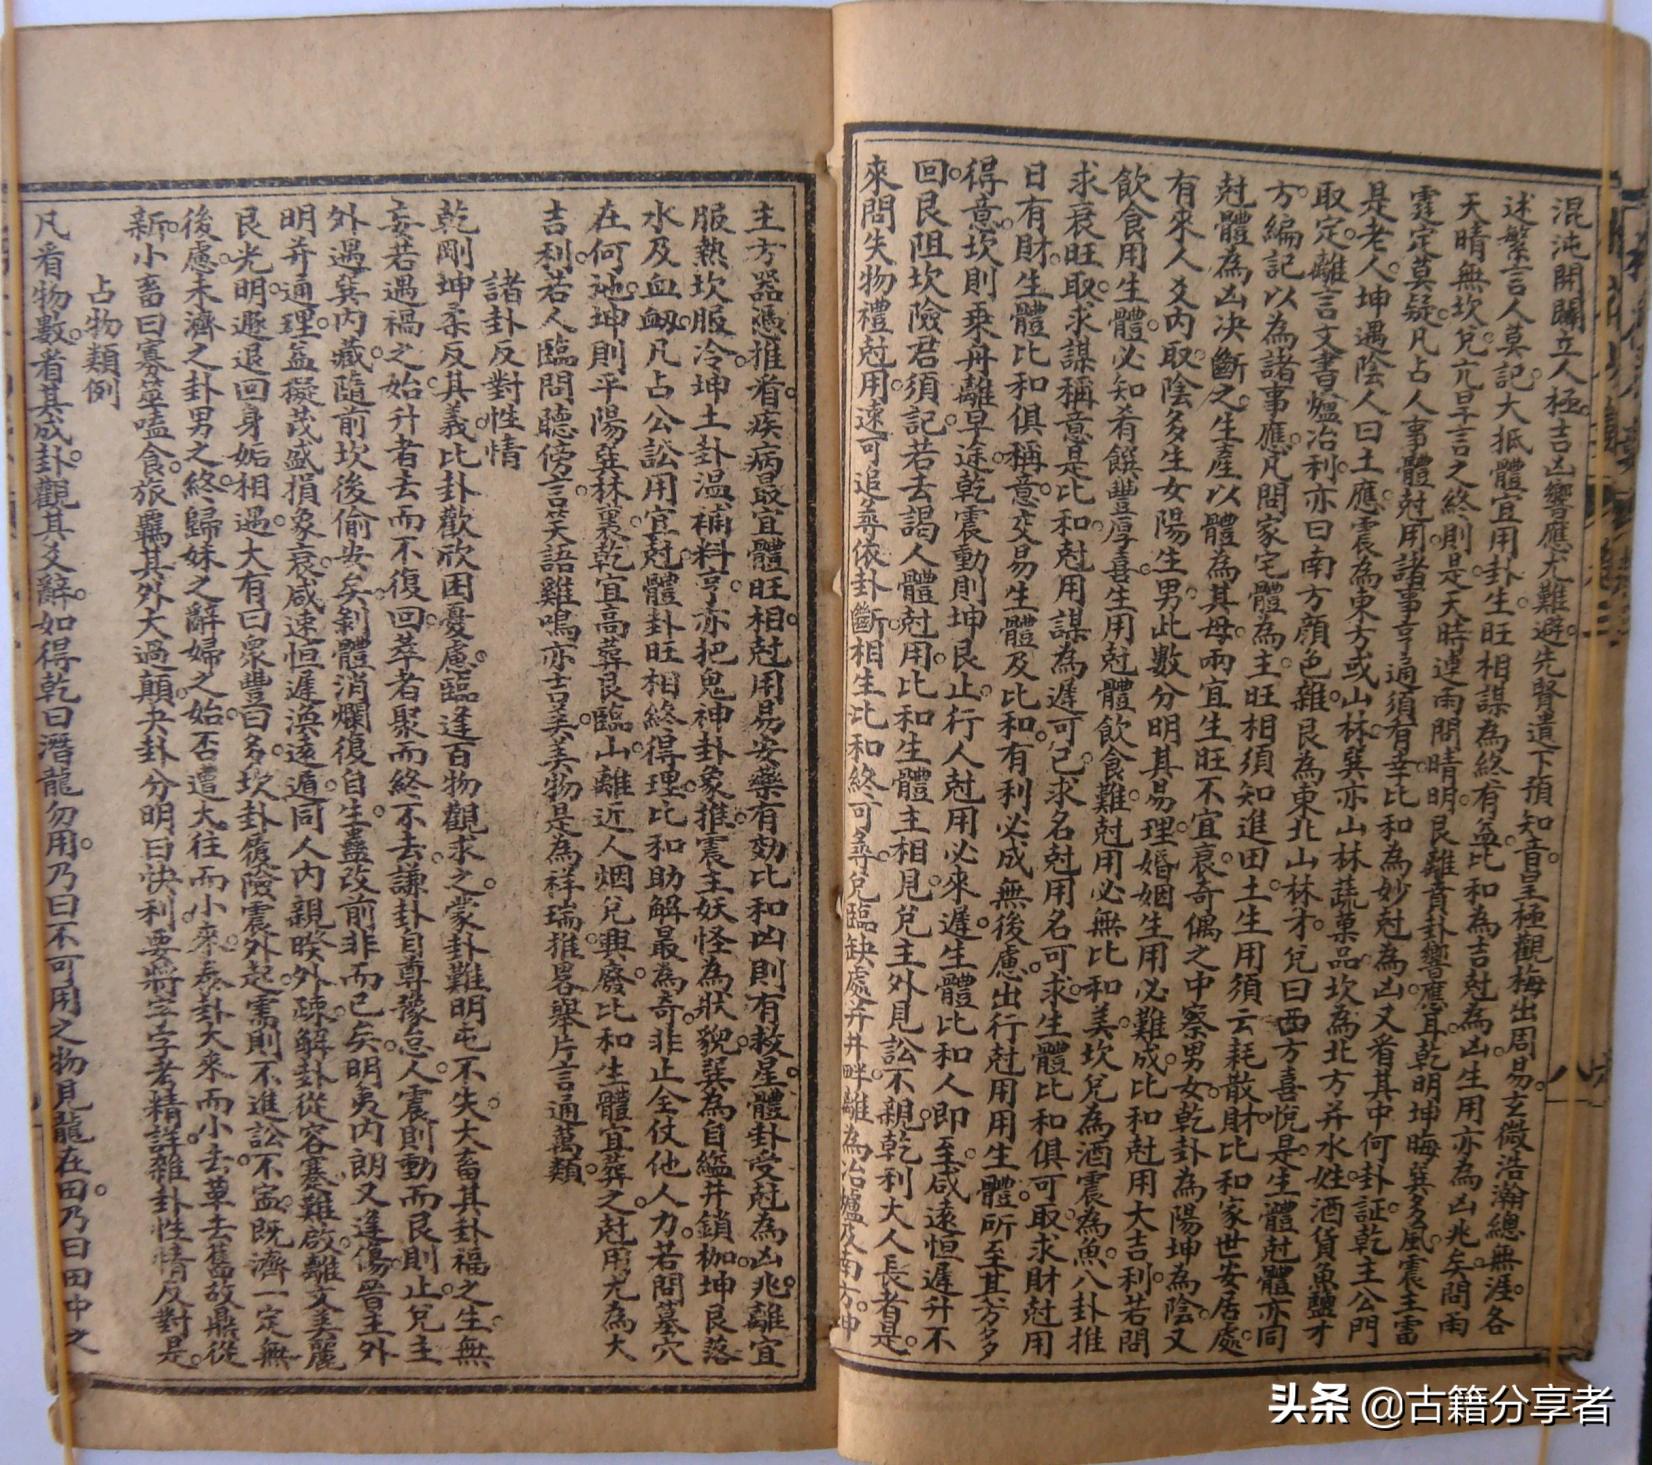 混沌開闢立人極吉凶響應尤難避先賢遺下預知音皇極觀梅出周易玄微浩瀚總無涯各
述繁言人莫記大抵體宜用卦生旺相謀為終有益比和為吉尅為凶生用亦為凶兆矣問雨
天晴無坎兌亢旱言之終則是天時連雨問晴明艮離賁卦響應耳乾明坤晦巽多風震主雷
霆定莫疑凡占人事體尅用諸事亨通須有幸比和為妙尅為凶又看其中何卦証乾主公門
是老人坤遇陰人曰土應震為東方或山林巽亦山林蔬菓品坎為北方并水姓酒貨魚鹽才
取定離言文書爐冶利亦曰南方顔色雜艮為東北山林才兌曰西方喜悅是生體尅體亦同
方編記以為諸事應凡問家宅體為主旺相須知進田土生用須云耗散財比和家世安居處
尅體為凶决斷之生產以體為其母兩宜生旺不宜衰奇偶之中察男女乾卦為陽坤為陰又
有來人爻内取陰多生女陽生男此數分明其易理婚姻生用必難成比和尅用大吉利若問
飲食用生體必知肴饌豐厚喜生用尅體飲食難尅用必無比和美坎兌為酒震為魚八卦推
求衰旺取求謀稱意是比和尅用謀為遲可已求名尅用名可求生體比和俱可取求財尅用
日有財生體比和俱稱意交易生體及比和有利必成無後慮出行尅用用生體所至其方多
得意坎則乘舟離旱途乾震動則坤艮止行人尅用必來遲生體比和人即至咸遠恒遲升不
回艮阻坎險君須記若去謁人體尅用比和生體主相見兌主外見訟不親乾利大人長者是
來問失物禮尅用速可追尋依卦斷相生比和終可尋兌臨缺處并井畔離為冶爐及南方坤
主方器憑推看疾病最宜體旺相尅用易安藥有効比和凶則有救星體卦受尅為凶兆離宜
服熱坎服冷坤土卦温補料亨亦把鬼神卦象推震主妖怪為狀貌巽為自縊井鎖枷坤艮落
水及血衂凡占公訟用宜尅體卦旺相終得理比和助解最為奇非止全仗他人力若問墓穴
在何地坤則平陽巽林裏乾宜高葬艮臨山離近人烟兌興廢比和生體宜葬之尅用尤為大
吉利若人臨問聽傍言笑語雞鳴亦吉美美物是為祥瑞推畧舉片言通萬類
諸卦反對性情
乾剛坤柔反其義比卦歡欣困憂慮臨逢百物觀求之蒙卦難明屯不失大畜其卦福之生無
妄若遇禍之始升者去而不復回萃者聚而終不去謙卦自尊豫怠人震則動而艮則止兌主
外遇巽内藏隨前坎後偷安矣剝體消爛復自生蠱改前非而已矣明夷内朗又逢傷晉主外
明并通理益擬茂盛損象衰咸速恒遲渙遠遁同人内親暌外疎解卦從容蹇難啟離文美麗
艮光明遯退回身姤相遇大有曰衆豐曰多坎卦履險震外起需則不進訟不寍既濟一定無
後慮未濟之卦男之終歸妹之辭婦之始否遭大往而小來泰卦大來而小去草去舊故鼎從
新小畜曰寡筮嗑食旅羈其外大過顛夬卦分明曰快利要將字字考精詳雜卦性情反對是
占物類例
凡看物數者其成卦觀其爻辭如得乾曰潛龍勿用乃曰不可用之物見龍在田乃曰田中之
头条 @古籍分享者